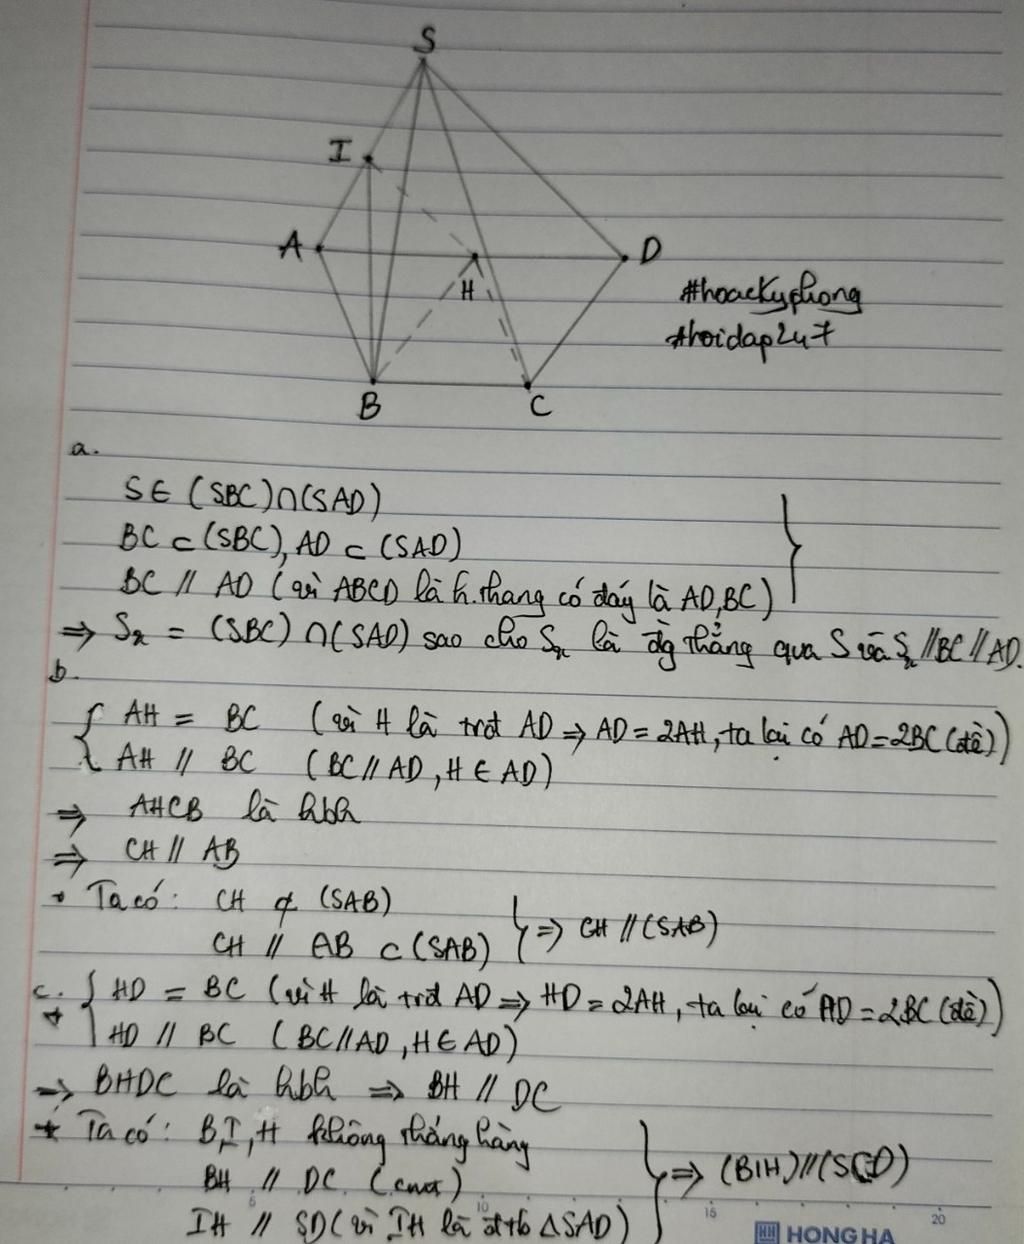 S
I
A
D
H
B
C
#hoackyphong
#hoidap247
a.
S ∈ (SBC)∩(SAD)
BC ⊂ (SBC), AD ⊂ (SAD)
BC // AD (vì ABCD là h.thang có đáy là AD,BC)
⇒ Sx = (SBC) ∩(SAD) sao cho Sx là đg thẳng qua S và Sx//BC//AD.
b.
AH = BC (vì H là trđ AD ⇒ AD = 2AH, ta lại có AD=2BC (đề))
AH // BC (BC//AD, H ∈ AD)
⇒ AHCB là hbh
⇒ CH // AB
• Ta có: CH ⊄ (SAB)
CH // AB ⊂ (SAB) ⇒ CH //(SAB)
c. HD = BC (vì H là trđ AD ⇒ HD = 2AH, ta lại có AD = 2BC (đề))
+ HD // BC (BC//AD, H∈ AD)
⇒ BHDC là hbh ⇒ BH // DC
+ Ta có: B,I,H không thẳng hàng
BH // DC (cmt)
IH // SD (vì IH là đtb ΔSAD) ⇒ (BIH)//(SCD)
5
10
15
20
HH HONG HA